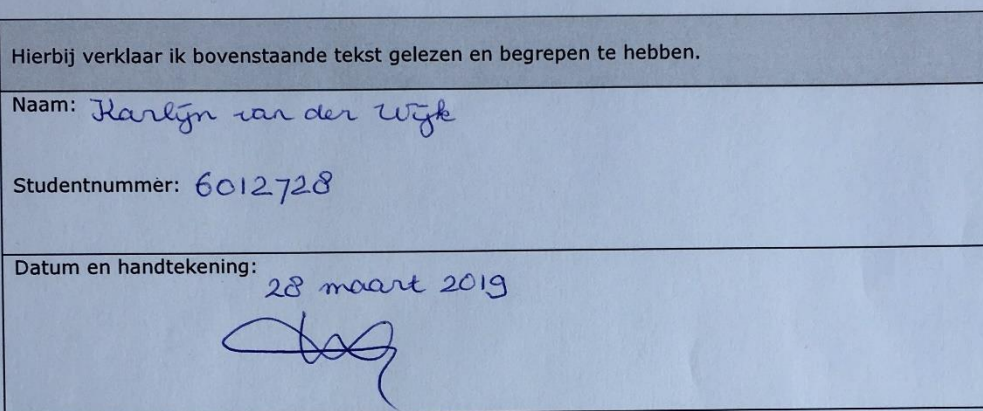 Hierbij verklaar ik bovenstaande tekst gelezen en begrepen te hebben.
Naam: Karlijn van der Wijk
Studentnummer: 6012728
Datum en handtekening:
28 maart 2019